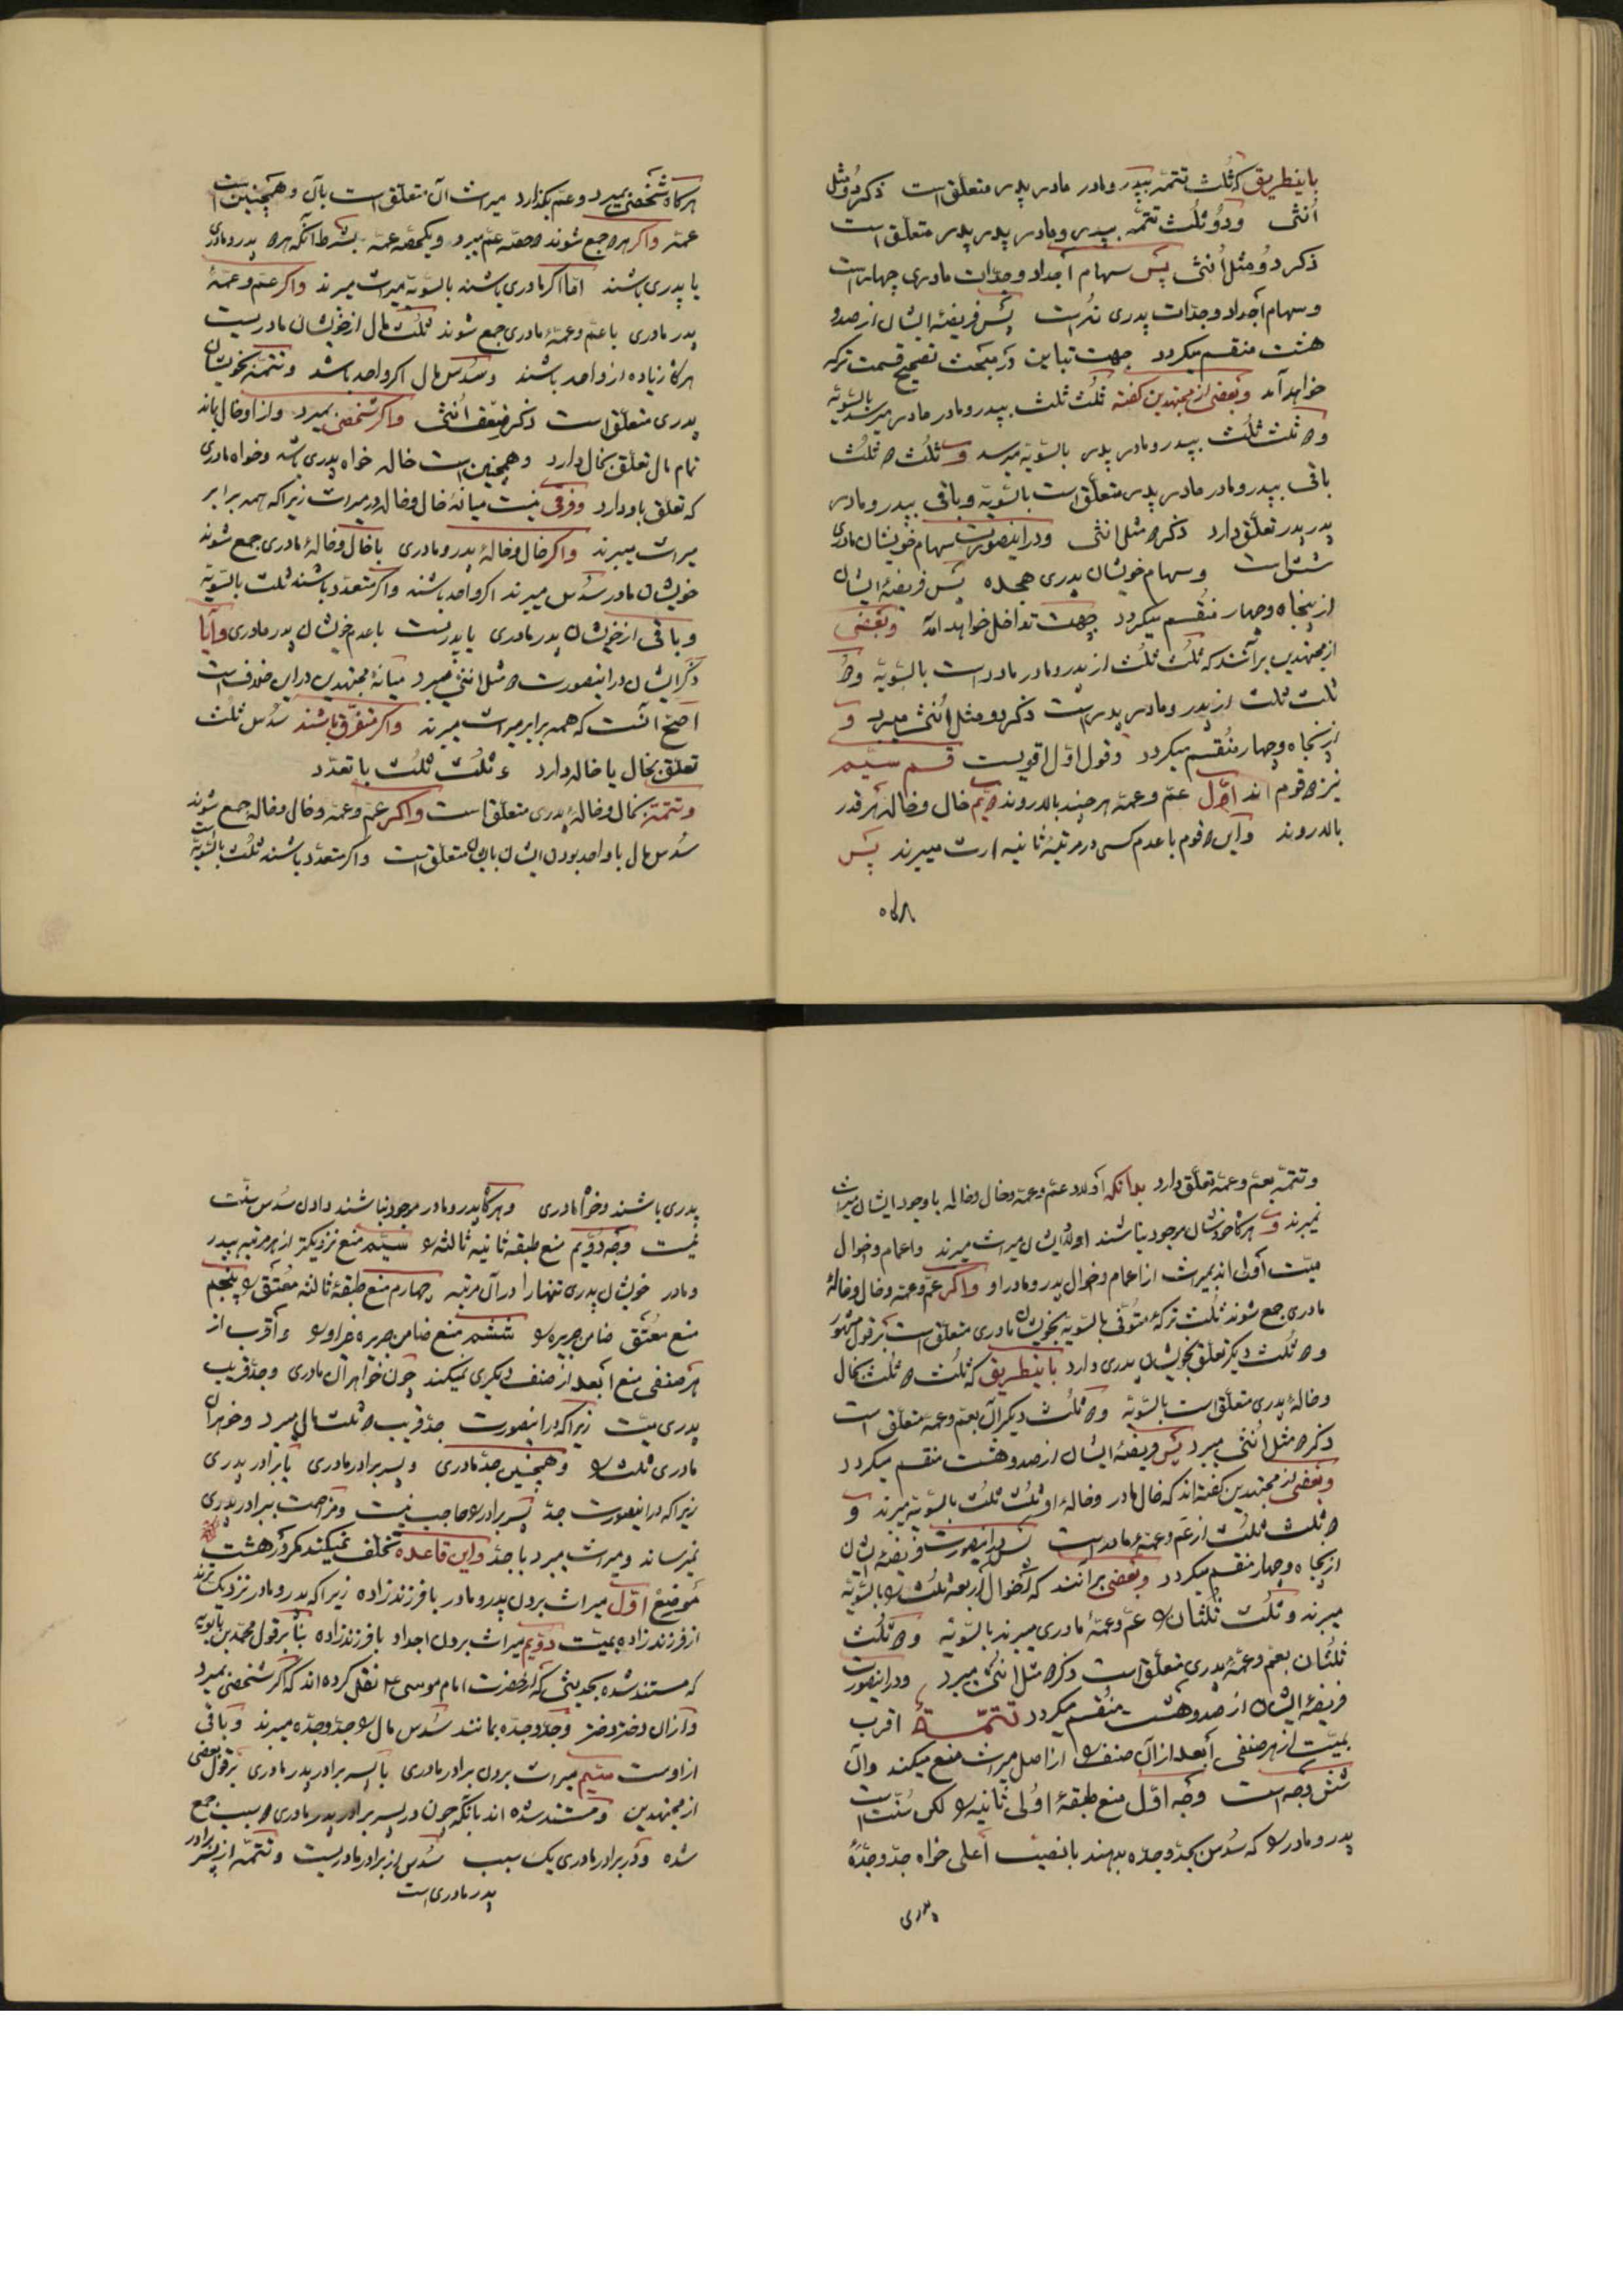 باینطریق که ثلث تتمه بپدر و مادر مادر پدر متعلق است ذکر دو مثل
اُنثی و دو ثلث تتمه بپدر و مادر پدر پدر متعلق است
ذکر دو مثل اُنثی پس سهام اجداد و جدات مادری چهار است
و سهام اجداد و جدات پدری نُه است پس فریضه ایشان از صد و
هشت منقسم میگردد جهت تباین در مبحث تصحیح قسمت ترکه
خواهد آمد و بعضی از مجتهدین گفته ثلث ثلث بپدر و مادر مادر میرسد بالسّویّه
و ۲ ثلث ثلث بپدر و مادر پدر بالسّویّه میرسد و ثلث ۲ ثلث
باقی بپدر و مادر مادر پدر متعلق است بالسّویّه و باقی بپدر و مادر
پدر پدر تعلق دارد ذکر ۲ مثل انثی و در اینصورت سهام خویشان مادری
شش است و سهام خویشان پدری هجده پس فریضهٔ ایشان
از پنجاه و چهار منقسم میگردد جهت تداخل خواهد آمد و بعضی
از مجتهدین برآنند که ثلث ثلث از پدر و مادر مادر است بالسّویّه و ۲
ثلث ثلث از پدر و مادر پدر است ذکر دو مثل اُنثی میبرد و
از پنجاه و چهار منقسم میگردد و قول اوّل اقویست قسم سیّم
نیز ۲ قوم اند اوّل عمّ و عمّه هر چند بالا روند ۲یم خال و خاله هر قدر
بالا روند و این ۲ قوم با عدم کسی در مرتبهٔ ثانیه ارث میبرند پس
هرکاه
هرکاه شخصی بمیرد و عمّ بگذارد میراث آن متعلق است بآن و همچنین است
عمّه و اگر هر ۲ جمع شوند ۲ حصّه عمّ میبرد و یکحصّه عمّه بشرط آنکه هر ۲ پدر و مادری
یا پدری باشند امّا اگر مادری باشند بالسّویّه میراث میبرند و اگر عمّ و عمّهٔ
پدر مادری با عمّ و عمّهٔ مادری جمع شوند ثلث مال از خویشان مادریست
هرگاه زیاده از واحد باشند و سدس مال اگر واحد باشد و تتمه بخویشان
پدری متعلق است ذکر ضعف انثی و اگر شخصی بمیرد و از او خال بماند
تمام مال تعلق بخال دارد و همچنین است خاله خواه پدری باشد و خواه مادری
که تعلق باو دارد و فرقی نیست میانهٔ خال و خاله در میراث زیرا که همه برابر
میراث میبرند و اگر خال و خالهٔ پدر و مادری با خال و خالهٔ مادری جمع شوند
خویشان مادر سدس میبرند اگر واحد باشند و اگر متعدد باشند ثلث بالسّویّه
و باقی از خویشان پدر مادری یا پدریست با عدم خویشان پدر مادری و آیا
ذکر ایشان در اینصورت ۲ مثل انثی میبرد میانهٔ مجتهدین در این خلاف است
اصحّ آنست که همه برابر میراث میبرند و اگر متفرّق باشند سدس ثلث
تعلق بخال یا خاله دارد و ثلث ثلث با تعدّد
و تتمه بخال و خالهٔ پدری متعلق است و اگر عمّ و عمّه و خال و خاله جمع شوند
سدس مال با واحد بودن ایشان بایشان متعلق است و اگر متعدد باشند ثلث بالسّویّه است
و تتمه بعمّ و عمّه تعلق دارد بدانکه اولاد عمّ و عمّه و خال و خاله با وجود ایشان میراث
نمیبرند و هرگاه خودشان موجود نباشند اولاد ایشان میراث میبرند و اعمام و اخوال
میّت اولی اند بمیراث از اعمام و اخوال پدر و مادر او و اگر عمّ و عمّه و خال و خالهٔ
مادری جمع شوند ثلث ترکهٔ متوفّی بالسّویّه بخویشان مادری متعلق است بر قول مشهور
و ۲ ثلث دیگر تعلق بخویشان پدری دارد باینطریق که ثلث ۲ ثلث بخال
و خالهٔ پدری متعلق است بالسّویّه و ۲ ثلث دیگر آن بعمّ و عمّه متعلق است
ذکر ۲ مثل اُنثی میبرد پس فریضهٔ ایشان از صد و هشت منقسم میگردد
و بعضی از مجتهدین گفته اند که خال مادر و خالهٔ او ثلث ثلث بالسّویّه میبرند و
۲ ثلث ثلث از عمّ و عمّهٔ مادر است پس در اینصورت فریضهٔ ایشان
از پنجاه و چهار منقسم میگردد و بعضی برآنند که اخوال اربعه ثلث را بالسّویّه
میبرند و ثلث ثلثان را عمّ و عمّهٔ مادری میبرند بالسّویّه و ۲ ثلث
ثلثان بعمّ و عمّهٔ پدری متعلق است ذکر ۲ مثل انثی میبرد و در اینصورت
فریضهٔ ایشان از صد و هشت منقسم میگردد تتمّهٔ اقرب
بمیّت از هر صنفی أبعد از آن صنف را از اصل میراث منع میکند و آن
شش وجه است وجه اوّل منع طبقهٔ اولی ثانیه را لکن سُنّت است
پدر و مادر را که سدس بجدّ و جدّه بدهند با نصیب اعلی خواه جدّ و جدّهٔ
پدری
پدری باشند و خواه مادری و هرگاه پدر و مادر موجود نباشند دادن سدس سنّت
نیست وجه دوّیم منع طبقه ثانیه ثالثه را سیّم منع نزدیکتر از هر مرتبه بپدر
و مادر خویشان پدری تنها را در آن مرتبه چهارم منع طبقهٔ ثالثه معتق را پنجم
منع معتق ضامن جریره را ششم منع ضامن جریره غیر او را و أقرب از
هر صنفی منع أبعد از صنف دیگری نمیکند چون خواهران مادری و جدّ قریب
پدری میّت زیرا که در اینصورت جدّ قریب ۲ ثلث مال میبرد و خواهران
مادری ثلث را و همچنین جدّ مادری و پسر برادر مادری با برادر پدری
زیرا که در اینصورت جدّ پسر برادر را حاجب نیست و مزاحمت ببرادر پدری
نمیرساند و میراث میبرد با جدّ و این قاعده تخلّف نمیکند مگر در هشت
موضع اوّل میراث بردن پدر و مادر با فرزندزاده زیرا که پدر و مادر نزدیک ترند
از فرزندزاده بمیّت دوّیم میراث بردن اجداد با فرزندزاده بنا بر قول محمّد بن بابویه
که مستند شده بحدیثی که از حضرت امام موسی ع نقل کرده اند که اگر شخصی بمیرد
و از آن دختر دختر و جدّ و جدّه بمانند سدس مال را جدّ و جدّه میبرند و باقی
از اوست سیّم میراث بردن برادر مادری با پسر برادر پدر مادری بر قول بعضی
از مجتهدین و مستند شده اند بآنکه چون در پسر برادر پدر مادری ۲ سبب جمع
شده و در برادر مادری یک سبب سدس از برادر مادریست و تتمّه از پسر برادر
پدر مادری است